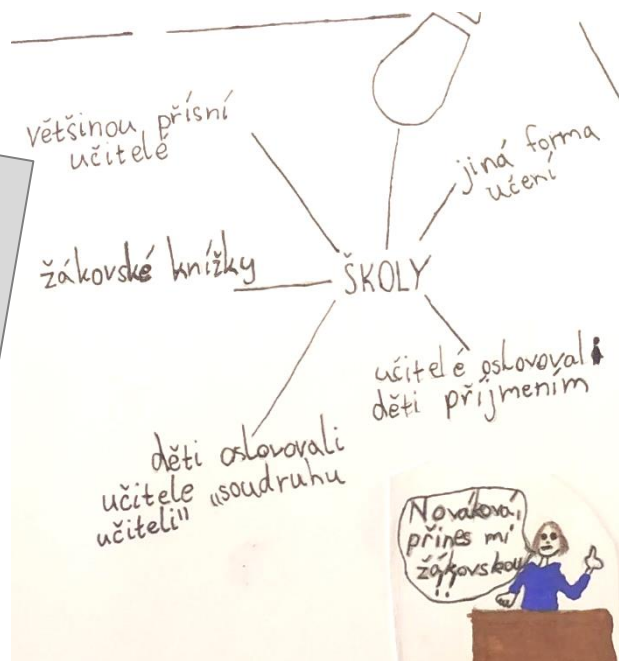 většinou přísní
učitelé
jiná forma
učení
žákovské knížky
ŠKOLY
učitelé oslovovali
děti příjmením
děti oslovovali
učitele „soudruhu
učiteli"
Nováková,
přines mi
žákovskou
!!